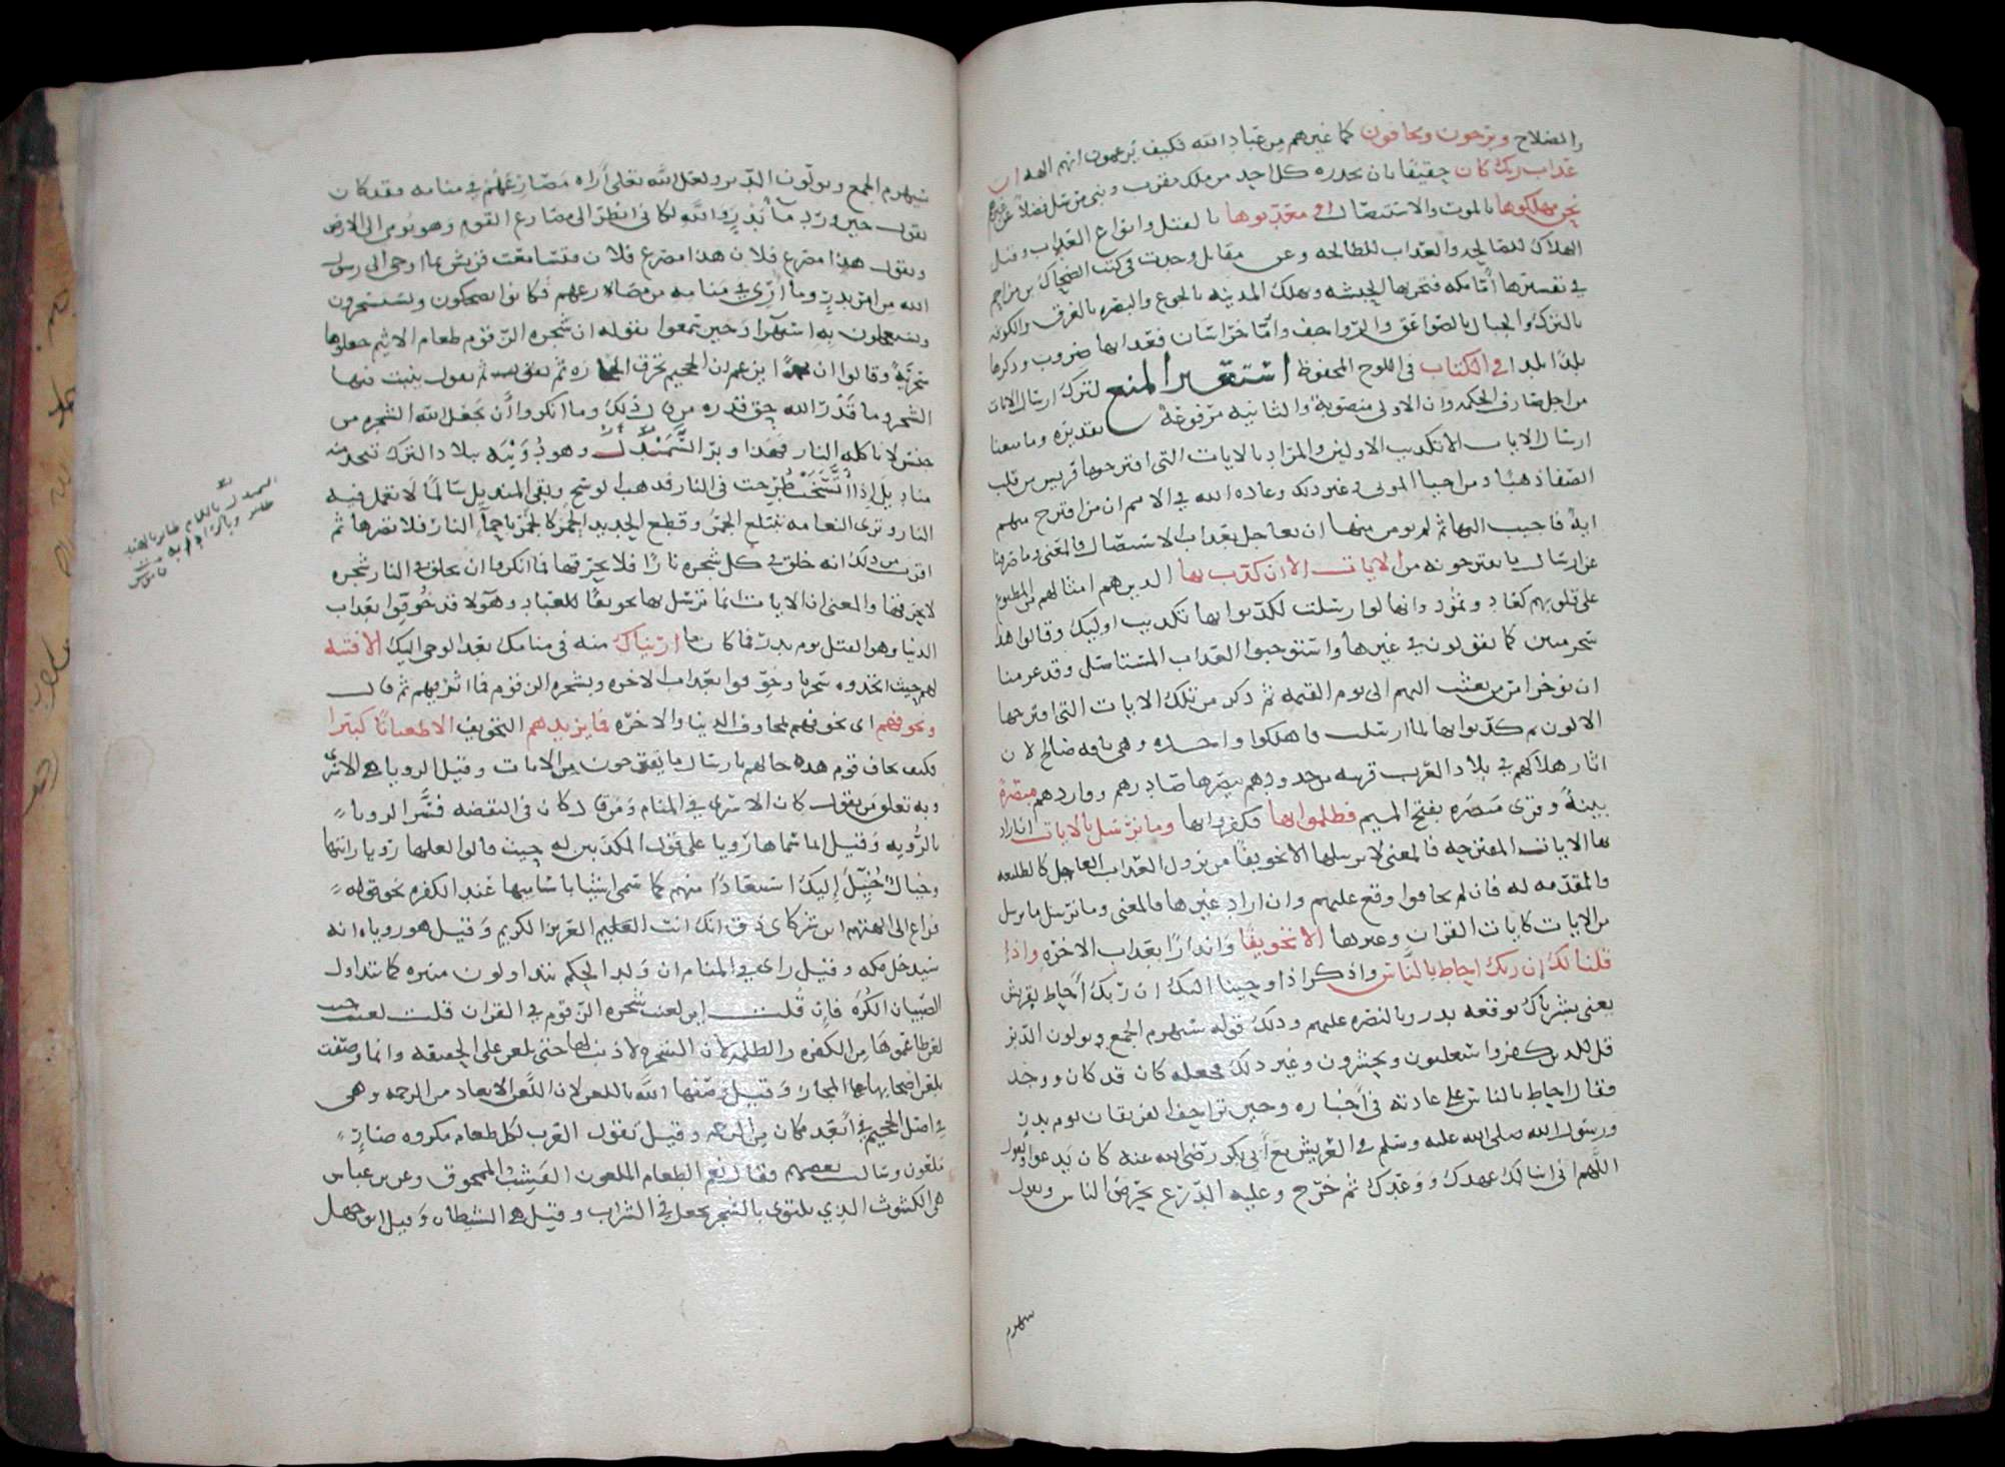 والصلاح ويرجون ويخافون كما غيرهم من عباد الله فكيف يزعمون انهم الهه ان
عذاب ربك كان حقيقا بان يحذره كل احد من ملك مقرب ونبي مرسل فضلا عن غيرهم
نحن مهلكوها بالموت والاستئصال او معذبوها بالقتل وانواع العذاب وقيل
الهلاك للصالحه والعذاب للطالحه وعن مقاتل وجدت في كتب الضحاك بن مزاحم
في تفسيرها أما مكه فتخربها الحبشه وتهلك المدينه بالجوع والبصره بالغرق والكوفه
بالترك والجبال بالصواعق والرواجف وأما خراسان فعذابها ضروب وذكرها
بلدا بلدا في الكتاب في اللوح المحفوظ استعير المنع لترك ارسال الايات
من اجل صارف الحكمه وان الاولى منصوبة والثانيه مرفوعة تقديره وما منعنا
ارسال الايات الا تكذيب الاولين والمراد بالايات التي اقترحوها قريش من قلب
الصفا ذهبا ومن احيا الموتى وغير ذلك وعاده الله في الامم ان من اقترح منهم
اية فاجيب اليها ثم لم يومن منها ان يعاجل بعذاب الاستئصال فالمعنى وما صرفنا
عن ارسال ما يقترحونه من الايات الا ان كذب بها الذين هم امثالهم من المطبوع
على قلوبهم كعاد وثمود وانها لو ارسلت لكذبوا بها تكذيب اوليك وقالوا هذا
سحر مبين كما يقولون في غيرها واستوجبوا العذاب المستاصل وقد عزمنا
ان نوخر امر من بعثت اليهم الى يوم القيمه ثم ذكر من تلك الايات التي اقترحها
الاولون ثم كذبوا بها لما ارسلت فاهلكوا واحده وهي ناقه صالح لان
اثار هلاكهم في بلاد العرب قريبه من حدودهم يبصرها صادرهم وواردهم مبصرة
بينة وقرى مبصره بفتح الميم فظلموا بها فكفروا بها وما نرسل بالايات ان اراد
بها الايات المقترحه فالمعنى لا نرسلها الا تخويفا من نزول العذاب العاجل كالطليعه
والمقدمه له فان لم يخافوا وقع عليهم وان اراد غيرها فالمعنى وما نرسل ما نرسل
من الايات كايات القران وغيرها الا تخويفا وانذارا بعذاب الاخره واذ
قلنا لك ان ربك احاط بالناس واذكر اذ اوحينا اليك ان ربك أحاط بقريش
يعني بشرناك بوقعه بدر وبالنصره عليهم وذلك قوله سيهزم الجمع ويولون الدبر
قل للذين كفروا ستغلبون وتحشرون وغير ذلك فجعله كان قد كان ووجد
فقال احاط بالناس على عادته في أخباره وحين تزاحف الفريقان يوم بدر
ورسول الله صلى الله عليه وسلم في العريش مع أبي بكر رضي الله عنه كان يدعوا ويقول
اللهم اني اسالك عهدك ووعدك ثم خرج وعليه الدرع يحرض الناس ويقول
سيهزم
سيهزم الجمع ويولون الدبر ولعل الله تعلى أراه مصارعهم في منامه فقد كان
يقول حين ورد ما بدر والله لكاني انظر الى مصارع القوم وهو يومي الى الارض
ويقول هذا مصرع فلان هذا مصرع فلان فتسامعت قريش بما اوحي الى رسول
الله من امر بدر وما أري في منامه من مصارعهم فكانوا يضحكون ويستسخرون
ويستعجلون به استهزا وحين سمعوا بقوله ان شجره الزقوم طعام الاثيم جعلوها
سخرية وقالوا ان محمدا يزعم ان الجحيم تحرق الحجاره ثم يقول ينبت فيها
الشجر وما قدر الله حق قدره من قال ذلك وما انكروا أن يجعل الله الشجره من
جنس لا تاكله النار فهذا وبر السمندل وهو دويبه ببلاد الترك تتخذ منه
مناديل إذا اتسخت طرحت في النار فذهب الوسخ وبقي المنديل سالما لا تعمل فيه
النار وترى النعامه تبتلع الجمر وقطع الحديد الحمر كالجمر باحما النار فلا تضرها ثم
اقرب من ذلك انه خلق في كل شجره نارا فلا تحرقها فما انكروا ان يخلق في النار شجره
لا تحرقها والمعنى ان الايات انما نرسل بها تخويفا للعباد وهولا قد خوفوا بعذاب
الدنيا وهو القتل يوم بدر فما كان ما اريناك منه في منامك بعد الوحي اليك الا فتنه
لهم حيث اتخذوه سخريا وخوفوا بعذاب الاخره وبشجره الزقوم فما اثر فيهم ثم قال
ونخوفهم اي نخوفهم بمخاوف الدنيا والاخره فما يزيدهم التخويف الا طغيانا كبيرا
فكيف يخاف قوم هذه حالهم بارسال ما يقترحون من الايات وقيل الرويا هي الاسرى
وبه تعلق من يقول كان الاسرى في المنام ومن قال كان في اليقظه فسر الرويا
بالرؤيه وقيل انما سماها رويا على قول المكذبين له حيث قالوا لعلها رويا رايتها
وخيال خيل إليك استبعادا منهم كما سمى اشيا باساميها عند الكفره نحو قوله
فراغ الى الهتهم اين شركاي ذق انك انت العزيز الكريم وقيل هو روياه انه
سيدخل مكه وقيل راى في المنام ان ولد الحكم يتداولون منبره كما يتداول
الصبيان الكره فان قلت اين لعنت شجره الزقوم في القران قلت لعنت حيث
لعن طاعموها من الكفره والظلمه لان الشجره لا ذنب لها حتى تلعن على الحقيقه وانما وصفت
بلعن اصحابها على المجاز وقيل وصفها الله باللعن لان اللعن الابعاد من الرحمه وهي
في اصل الجحيم في أبعد مكان من الرحمه وقيل تقول العرب لكل طعام مكروه ضار
ملعون وسالت بعضهم فقال نعم الطعام الملعون القشب الممحوق وعن بن عباس
هي الكشوث الذي يلتوى بالشجر يجعل في الشراب وقيل هي الشيطان وقيل ابو جهل
السمندل باللام طائر بالهند